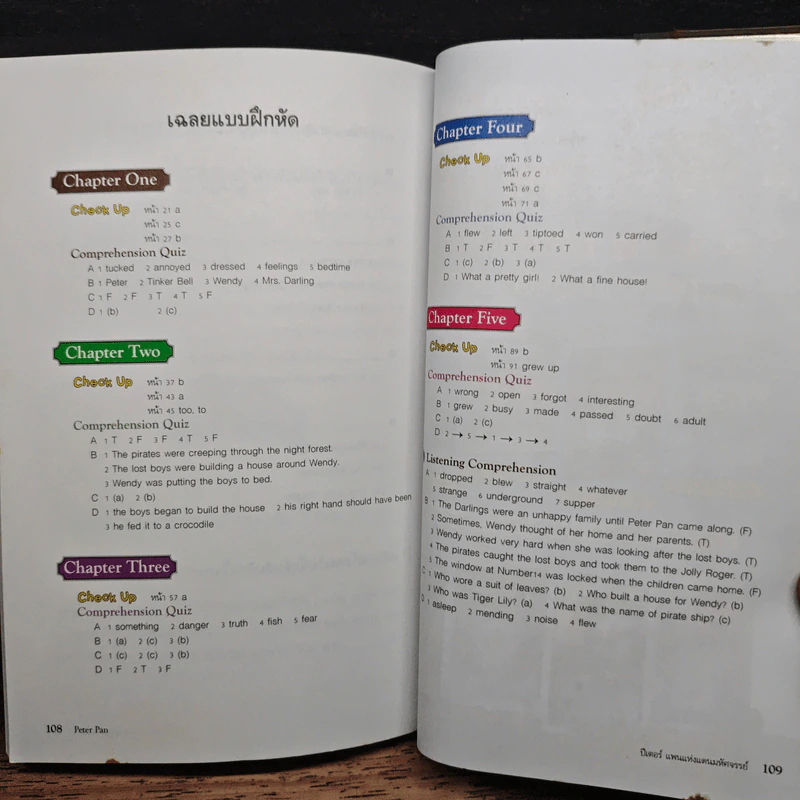 เฉลยแบบฝึกหัด
Chapter One
Check Up หน้า 21 a
หน้า 25 c
หน้า 27 b
Comprehension Quiz
A 1 tucked 2 annoyed 3 dressed 4 feelings 5 bedtime
B 1 Peter 2 Tinker Bell 3 Wendy 4 Mrs. Darling
C 1 F 2 F 3 T 4 T 5 F
D 1 (b) 2 (c)
Chapter Two
Check Up หน้า 37 b
หน้า 43 a
หน้า 45 too, to
Comprehension Quiz
A 1 T 2 F 3 F 4 T 5 F
B 1 The pirates were creeping through the night forest.
2 The lost boys were building a house around Wendy.
3 Wendy was putting the boys to bed.
C 1 (a) 2 (b)
D 1 the boys began to build the house 2 his right hand should have been
3 he fed it to a crocodile
Chapter Three
Check Up หน้า 57 a
Comprehension Quiz
A 1 something 2 danger 3 truth 4 fish 5 fear
B 1 (a) 2 (c) 3 (b)
C 1 (c) 2 (c) 3 (b)
D 1 F 2 T 3 F
108 Peter Pan
Chapter Four
Check Up หน้า 65 b
หน้า 67 c
หน้า 69 c
หน้า 71 a
Comprehension Quiz
A 1 flew 2 left 3 tiptoed 4 won 5 carried
B 1 T 2 F 3 T 4 T 5 T
C 1 (c) 2 (b) 3 (a)
D 1 What a pretty girl! 2 What a fine house!
Chapter Five
Check Up หน้า 89 b
หน้า 91 grew up
Comprehension Quiz
A 1 wrong 2 open 3 forgot 4 interesting
B 1 grew 2 busy 3 made 4 passed 5 doubt 6 adult
C 1 (a) 2 (c)
D 2 → 5 → 1 → 3 → 4
Listening Comprehension
A 1 dropped 2 blew 3 straight 4 whatever
5 strange 6 underground 7 supper
B 1 The Darlings were an unhappy family until Peter Pan came along. (F)
2 Sometimes, Wendy thought of her home and her parents. (T)
3 Wendy worked very hard when she was looking after the lost boys. (T)
4 The pirates caught the lost boys and took them to the Jolly Roger. (T)
5 The window at Number14 was locked when the children came home. (F)
C 1 Who wore a suit of leaves? (b) 2 Who built a house for Wendy? (b)
3 Who was Tiger Lily? (a) 4 What was the name of pirate ship? (c)
D 1 asleep 2 mending 3 noise 4 flew
ปีเตอร์ แพนแห่งแดนมหัศจรรย์ 109